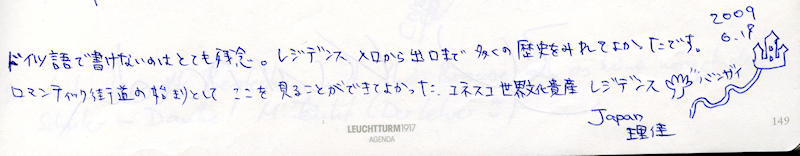 2009
6.19
ドイツ語で書けないのはとても残念。レジデンス 入口から出口まで 多くの歴史をみれてよかったです。
ロマンティック街道の始まりとして ここを 見ることができてよかった。ユネスコ世界文化遺産 レジデンス バンザイ
Japan
理佳
LEUCHTTURM1917
AGENDA
149